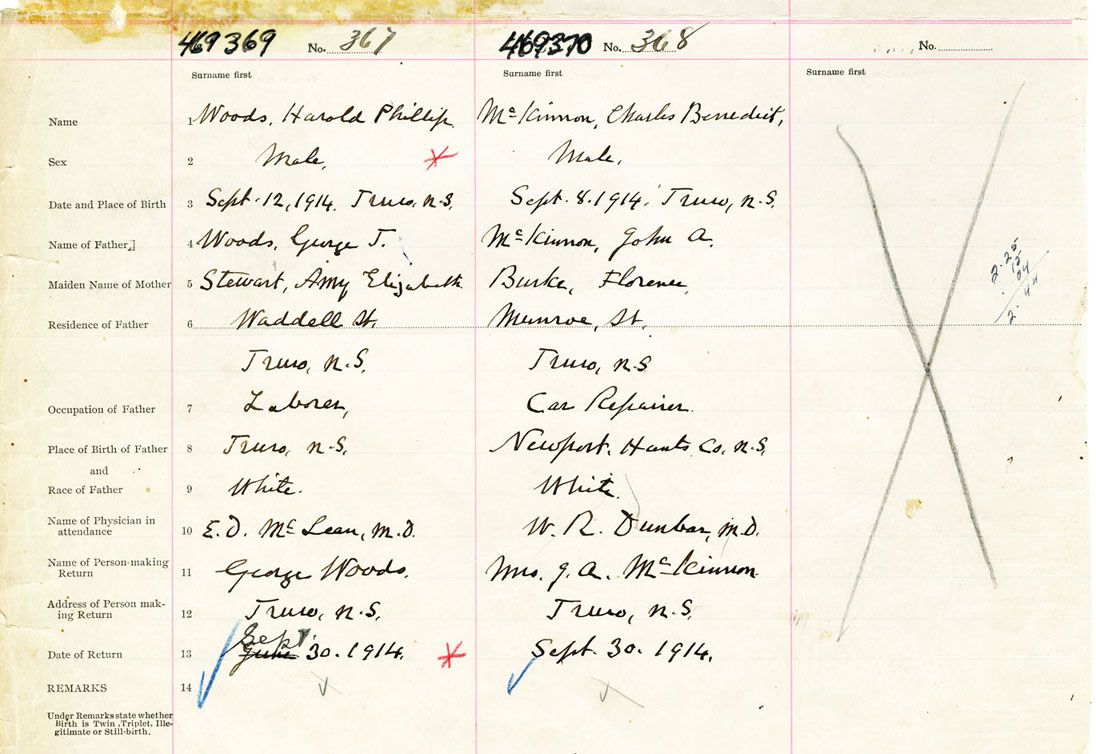 469369 No. 367 469370 No. 368 No.
Surname first Surname first Surname first
Name 1 Woods, Harold Phillip Mc Kinnon, Charles Benedict,
Sex 2 Male, Male,
Date and Place of Birth 3 Sept. 12, 1914. Truro, N.S. Sept. 8. 1914. Truro, N.S.
Name of Father 4 Woods, George T. Mc Kinnon, John A.
Maiden Name of Mother 5 Stewart, Amy Elizabeth Burke, Florence,
Residence of Father 6 Waddell St. Munroe, St.
Truro, N.S. Truro, N.S
Occupation of Father 7 Laborer, Car Repairer.
Place of Birth of Father 8 Truro, N.S. Newport. Hants Co. N.S.
and
Race of Father 9 White. White.
Name of Physician in
attendance 10 E. D. Mc Lean, M.D. W. R. Dunbar, M.D.
Name of Person making
Return 11 George Woods. Mrs. J. A. Mc Kinnon
Address of Person mak-
ing Return 12 Truro, N.S. Truro, N.S.
Sept.
Date of Return 13 June 30. 1914. Sept. 30. 1914.
REMARKS 14
Under Remarks state whether
Birth is Twin, Triplet, Ille-
gitimate or Still-birth.
2.25
15
04
2.44